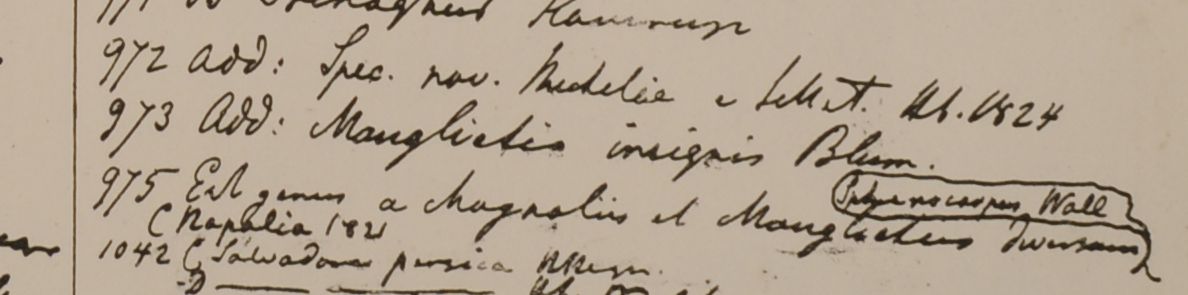 972 Add: Spec. nov. Micheliae e Hb. 1824
973 Add: Manglietia insignis Blum.
975 Est genus a Magnoliis et Manglieteis diversum
Sphenocarpus Wall
C Napalia 1821
1042 C Salvadora persica
D